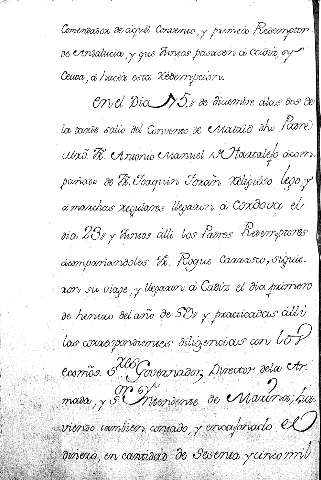 Comendador de aquel Convento, y primer Redemptor
de Andalucia, y que juntos pasasen á Cadiz, y
Ceuta, á hacer esta redempcion.
En el Dia 15,, de diciembre alas dos de
la tarde salio del Convento de Madrid dho Padre
Mrô Fr. Antonio Manuel de Hartalejo acom
pañado de Fr. Joaquin religioso lego, y
á marchas regulares llegaron á Cordova el
dia 23,, y juntos alli los Padres Redemptores
acompañandoles Fr. Roque Carrasco, siguie
ron su viage, y llegaron á Cadiz el dia primero
de henero del año de y practicadas alli
las correspondientes diligencias con los
ecsmôs. Governador, Director dela Ar
mada, y Sor Yntendente de Marina, ha
viendo tambien contado, y encajonado el
dinero, en cantidad de Sesenta y cinco mil